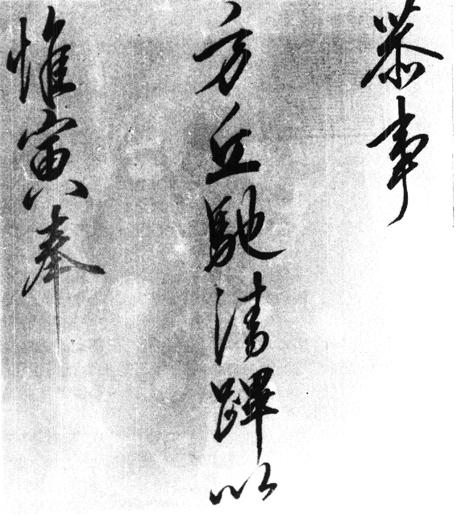 恭事
方丘馳清蹕以
惟寅奉